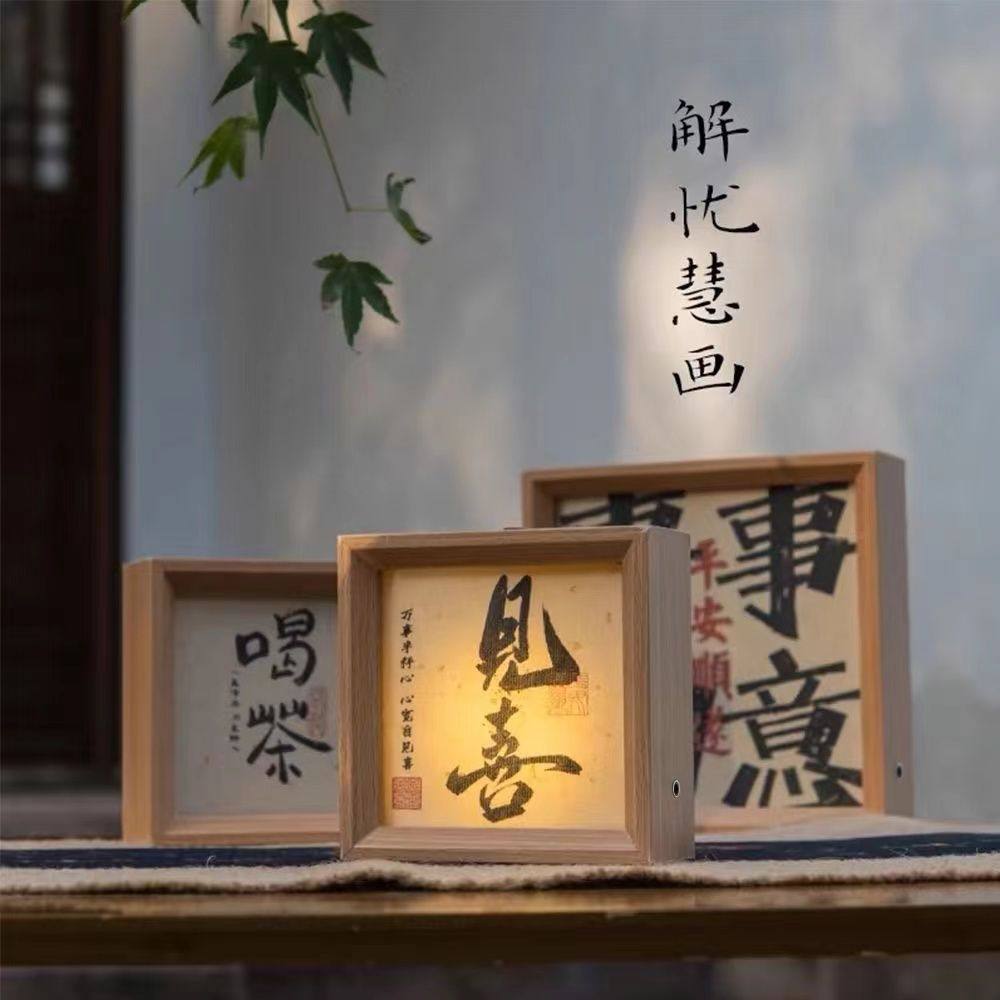 解忧慧画
喝茶
见喜
万事半称心 心宽自见喜
事
平安順遂
事意